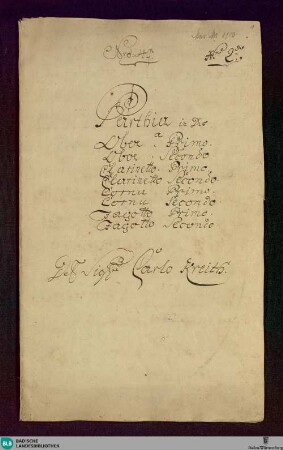 Mus. Hs. 1510
Parthia in Dis
a
Oboe Primo.
Oboe Secondo
Clarinetto Primo.
Clarinetto Secondo
Cornu Primo.
Cornu Secondo
Fagotto Primo.
Fagotto Secondo
Del Sigre Carlo Kreith.
BLB
BADISCHE
LANDESBIBLIOTHEK